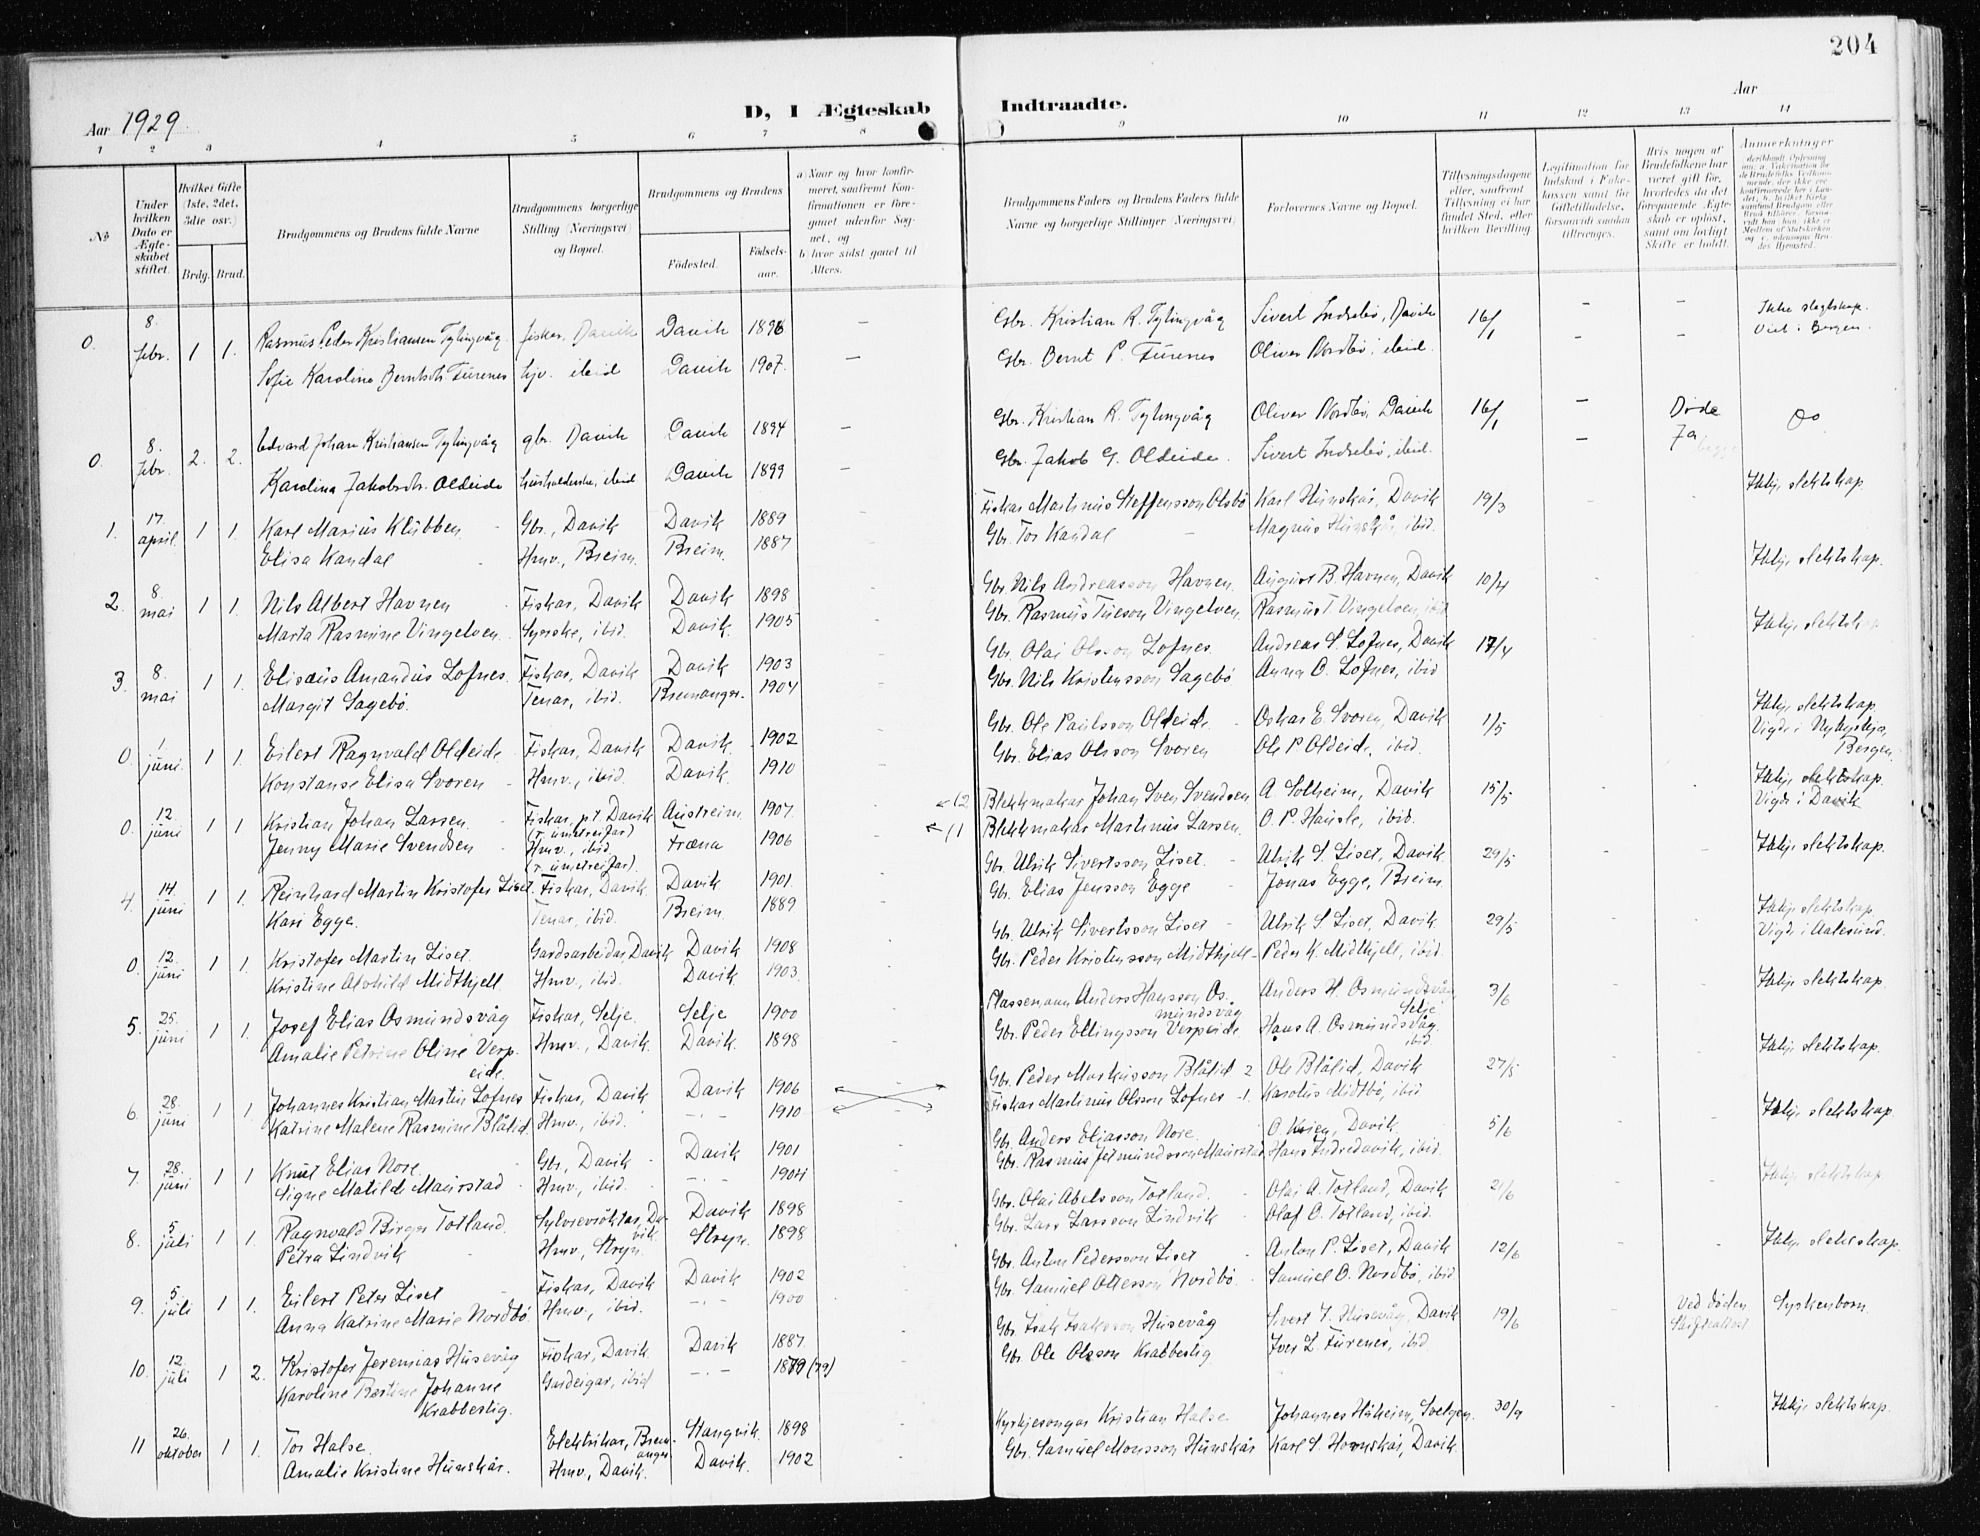 204
Aar 1929
D, I Ægteskab Indtraadte.
Aar
1 2 3 4 5 6 7 8 9 10 11 12 13 14
No
Under hvilken Dato er Ægteskabet stiftet.
Hvilket Gifte (1ste, 2det, 3die osv.)
Brdg. Brud.
Brudgommens og Brudens fulde Navne
Brudgommens borgerlige Stilling (Næringsvei) og Bopæl.
Brudgommens og Brudens
Fødested. Fødselsaar.
a) Naar og hvor konfirmeret, saafremt Konfirmationen er foregaaet udenfor Sognet, og
b) hvor sidst gaaet til Alters.
Brudgommens Faders og Brudens Faders fulde Navne og borgerlige Stillinger (Næringsvei)
Forlovernes Navne og Bopæl.
Tillysningsdagene eller, saafremt Tillysning ei har fundet Sted, efter hvilken Bevilling
Legitimation for Indskud i Enkekassen samt for Giftetilladelse, forsaavidt saadan tiltrænges.
Hvis nogen af Brudefolkene har været gift før, hvorledes da det foregaaende Ægteskab er opløst, samt om lovligt Skifte er holdt.
Anmerkninger
0. 8. febr. 1 1. Rasmus Peder Kristiansen Tytingvåg fisker, Davik Davik 1898 — Gbr. Kristian R. Tytingvåg Sivert Indrebø, Davik 16/1 — — Ikke slegtskap.
Sofie Karoline Berntsdtr. Furenes hjv. ibid Davik 1907. — Gbr. Bernt P. Furenes Oliver Nordbø, ibid. — Viet i Bergen.
0. 8. febr. 2. 2. Edvard Johan Kristiansen Tytingvåg gbr. Davik Davik 1894 — Gbr. Kristian R. Tytingvåg Oliver Nordbø, Davik 16/1 — Døde
Karolina Jakobsdtr. Oldeide husholderske, ibid Davik 1899 — Gbr. Jakob G. Oldeide. Sivert Indrebø, ibid. — Ja
1. 17. april. 1 1. Karl Marius Klubben Gbr., Davik Davik 1889 Fiskar Martinus Steffensson Olsbø Karl Hunskår, Davik 19/3 Ikkje slektskap
Elisa Kandal Hmv., Breim. Breim. 1887 Gbr. Tor Kandal Magnus Hunskår, ibid.
2. 8. mai 1 1. Nils Albert Havnen Fiskar, Davik Davik 1898 Gbr. Nils Andreasson Havnen. August B. Havnen, Davik 10/4 Ikkje slektskap.
Marta Rasmine Vingelven. Syerske, ibid. Davik. 1905 Gbr. Rasmus Tueson Vingelven Rasmus T. Vingelven, ibid
3. 8. mai 1 1. Elisæus Amandus Lofnes. Fiskar, Davik Davik 1903 Gbr. Olai Olsson Lofnes. Andreas S. Lofnes, Davik 17/4 Ikkje slektskap
Margit Sagebø. Tenar, ibid. Bremanger. 1904 Gbr. Nils Kristensson Sagebø Anna O. Lofnes, ibid
0. 1 juni. 1 1. Eilert Ragnvald Oldeide Fiskar, Davik Davik. 1902 Gbr. Ole Paulsson Oldeide. Oskar E. Svoren, Davik 1/5 Ikkje slektskap.
Konstanse Elisa Svoren Hmv., ibid. Davik. 1910 Gbr. Elias Olsson Svoren Ole P. Oldeide, ibid. Vigde i Nykyrkja, Bergen.
0. 12. juni 1 1 Kristian Johan Larsen. Fiskar, p.t. Davik (r. umstreifar) Austreim 1907. ←12 Blekkmakar Johan Sven Svendsen A. Solheim, Davik 15/5 Ikkje slektskap.
Jenny Marie Svendsen Hmv., ibid. (r. umstreifar). Fræna 1906 ←11 Blekkmakar Martinus Larsen. O. P. Hausle, ibid. Vigde i Davik
4. 14. juni 1 1. Reinhard Martin Kristofer Liset. Fiskar, Davik Davik 1901. Gbr. Ulrik Sivertsson Liset. Ulrik S. Liset, Davik 29/5 Ikkje slektskap.
Kari Egge. Tenar, ibid. Breim. 1889. Gbr. Elias Jensson Egge Jonas Egge, Breim
0. 12. juni 1 1. Kristofer Martin Liset. Gardsarbeidar, Davik Davik 1908 Gbr. Ulrik Sivertsson Liset Ulrik S. Liset, Davik. 29/5 Ikkje slektskap.
Kristine Alvhild Midthjell Hmv., ibid. Davik 1903. Gbr. Peder Kristensson Midthjell Peder K. Midthjell, ibid. Vigde i Aalesund.
5. 25. juni 1 1. Josef Elias Osmundsvåg Fiskar, Selje. Selje 1900 Plassemann Anders Hansson Osmundsvåg Anders H. Osmundsvåg Selje 3/6 Ikkje slektskap.
Amalie Petrine Oline Verpeide. Hmv., Davik. Davik. 1898 Gbr. Peder Ellingsson Verpeide Hans A. Osmundsvåg. ibid.
6. 28. juni 1 1. Johannes Kristian Martin Lofnes Fiskar, Davik Davik 1906 Gbr. Peder Markusson Blålid 2 Ole Blålid, Davik 27/5 Ikkje slektskap.
Katrine Malene Rasmine Blålid. Hmv., ibid. —.— 1910 Fiskar Martinus Olsson Lofnes 1. Karolus Midtbø, ibid
7. 28. juni 1 1 Knut Elias Nore. Gbr., Davik Davik 1901 Gbr. Anders Eliasson Nore. O. Kvien, Davik. 5/6 Ikkje slektskap.
Signe Matilde Maurstad Hmv., ibid. —.— 1904 Gbr. Rasmus Jetmundsson Maurstad Hans Indredavik, ibid.
8. 5. juli 1 1. Ragnvald Birger Totland. Sylvrevrøktar, Davik Davik 1898 Gbr. Olai Abelsson Totland. Olai A. Totland, Davik 21/6 Ikkje slektskap
Petra Lindvik Hmv., Stryn. Stryn. 1898 Gbr. Lars Larsson Lindvik Olaf O. Totland, ibid.
9. 5. juli 1 1. Eilert Peter Liset Fiskar, Davik Davik 1902 Gbr. Anton Pedersson Liset Anton P. Liset, Davik 12/6 Ikkje slektskap.
Anna Katrine Marie Nordbø. Hmv., ibid. —.— 1900 Gbr. Samuel Ottersson Nordbø. Samuel O. Nordbø, ibid
10. 12. juli 1 2. Kristofer Jeremias Husevåg Fiskar, Davik. Davik 1887. Gbr. Isak Isaksson Husevåg Sivert I. Husevåg, Davik 19/6 Ved døden Syskenborn.
Karoline Bertine Johanne Krabbestig. Gardeigar, ibid —.— 1879 (79) Gbr. Ole Olsson Krabbestig Iver L. Furenes, ibid.
11 26. oktober 1 1. Tor Halse. Elektrikar, Bremanger. Stangvik. 1898 Kyrkjesongar Kristian Halse. Johannes Håheim, Svelgen. 30/9 Ikkje slektskap.
Amalie Kristine Hunskår. Hmv., Davik. Davik. 1902 Gbr. Samuel Monsson Hunskår Karl S. Hornskår, Davik.